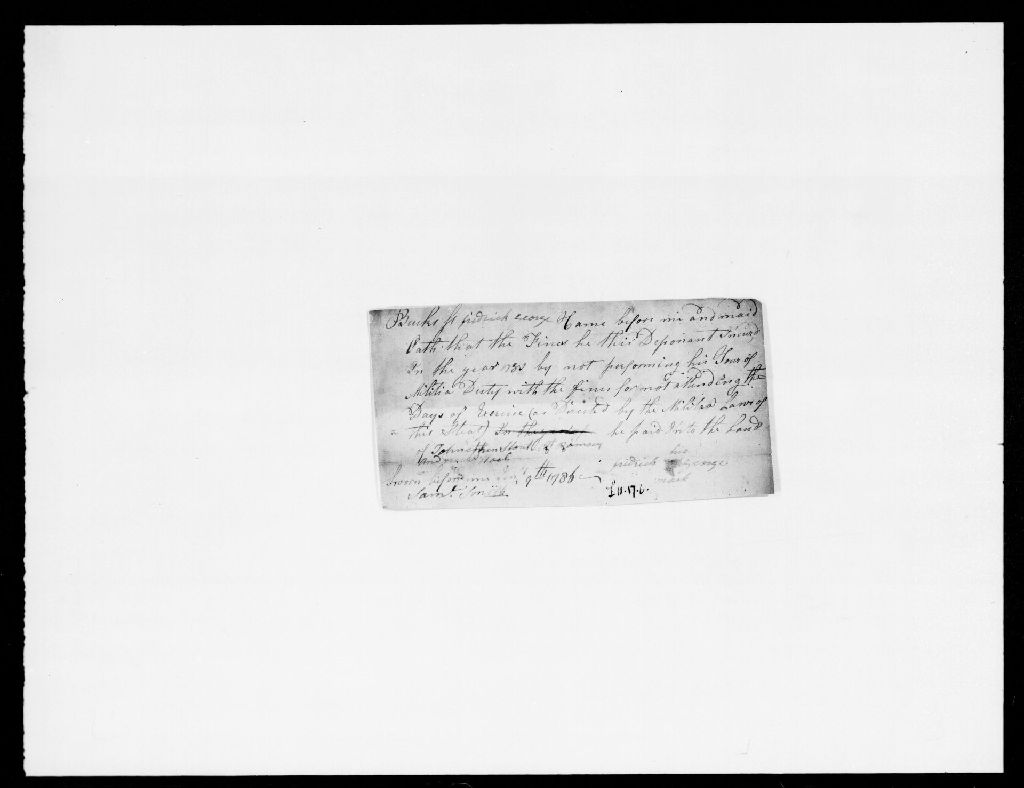 Bucks ss fridrich George Came before me and maid
Oath that the Fines he this Deponant Incurd
In the year by not performing his Tour of
Militia Duty with the fines for not attending the
Days of Exercise (as Directed by the Militia Laws of
this Steat) he paid Into the hand
of
Sworn before me 9th 1786 his
Saml Smith fridrich George
£11.17.6. mark